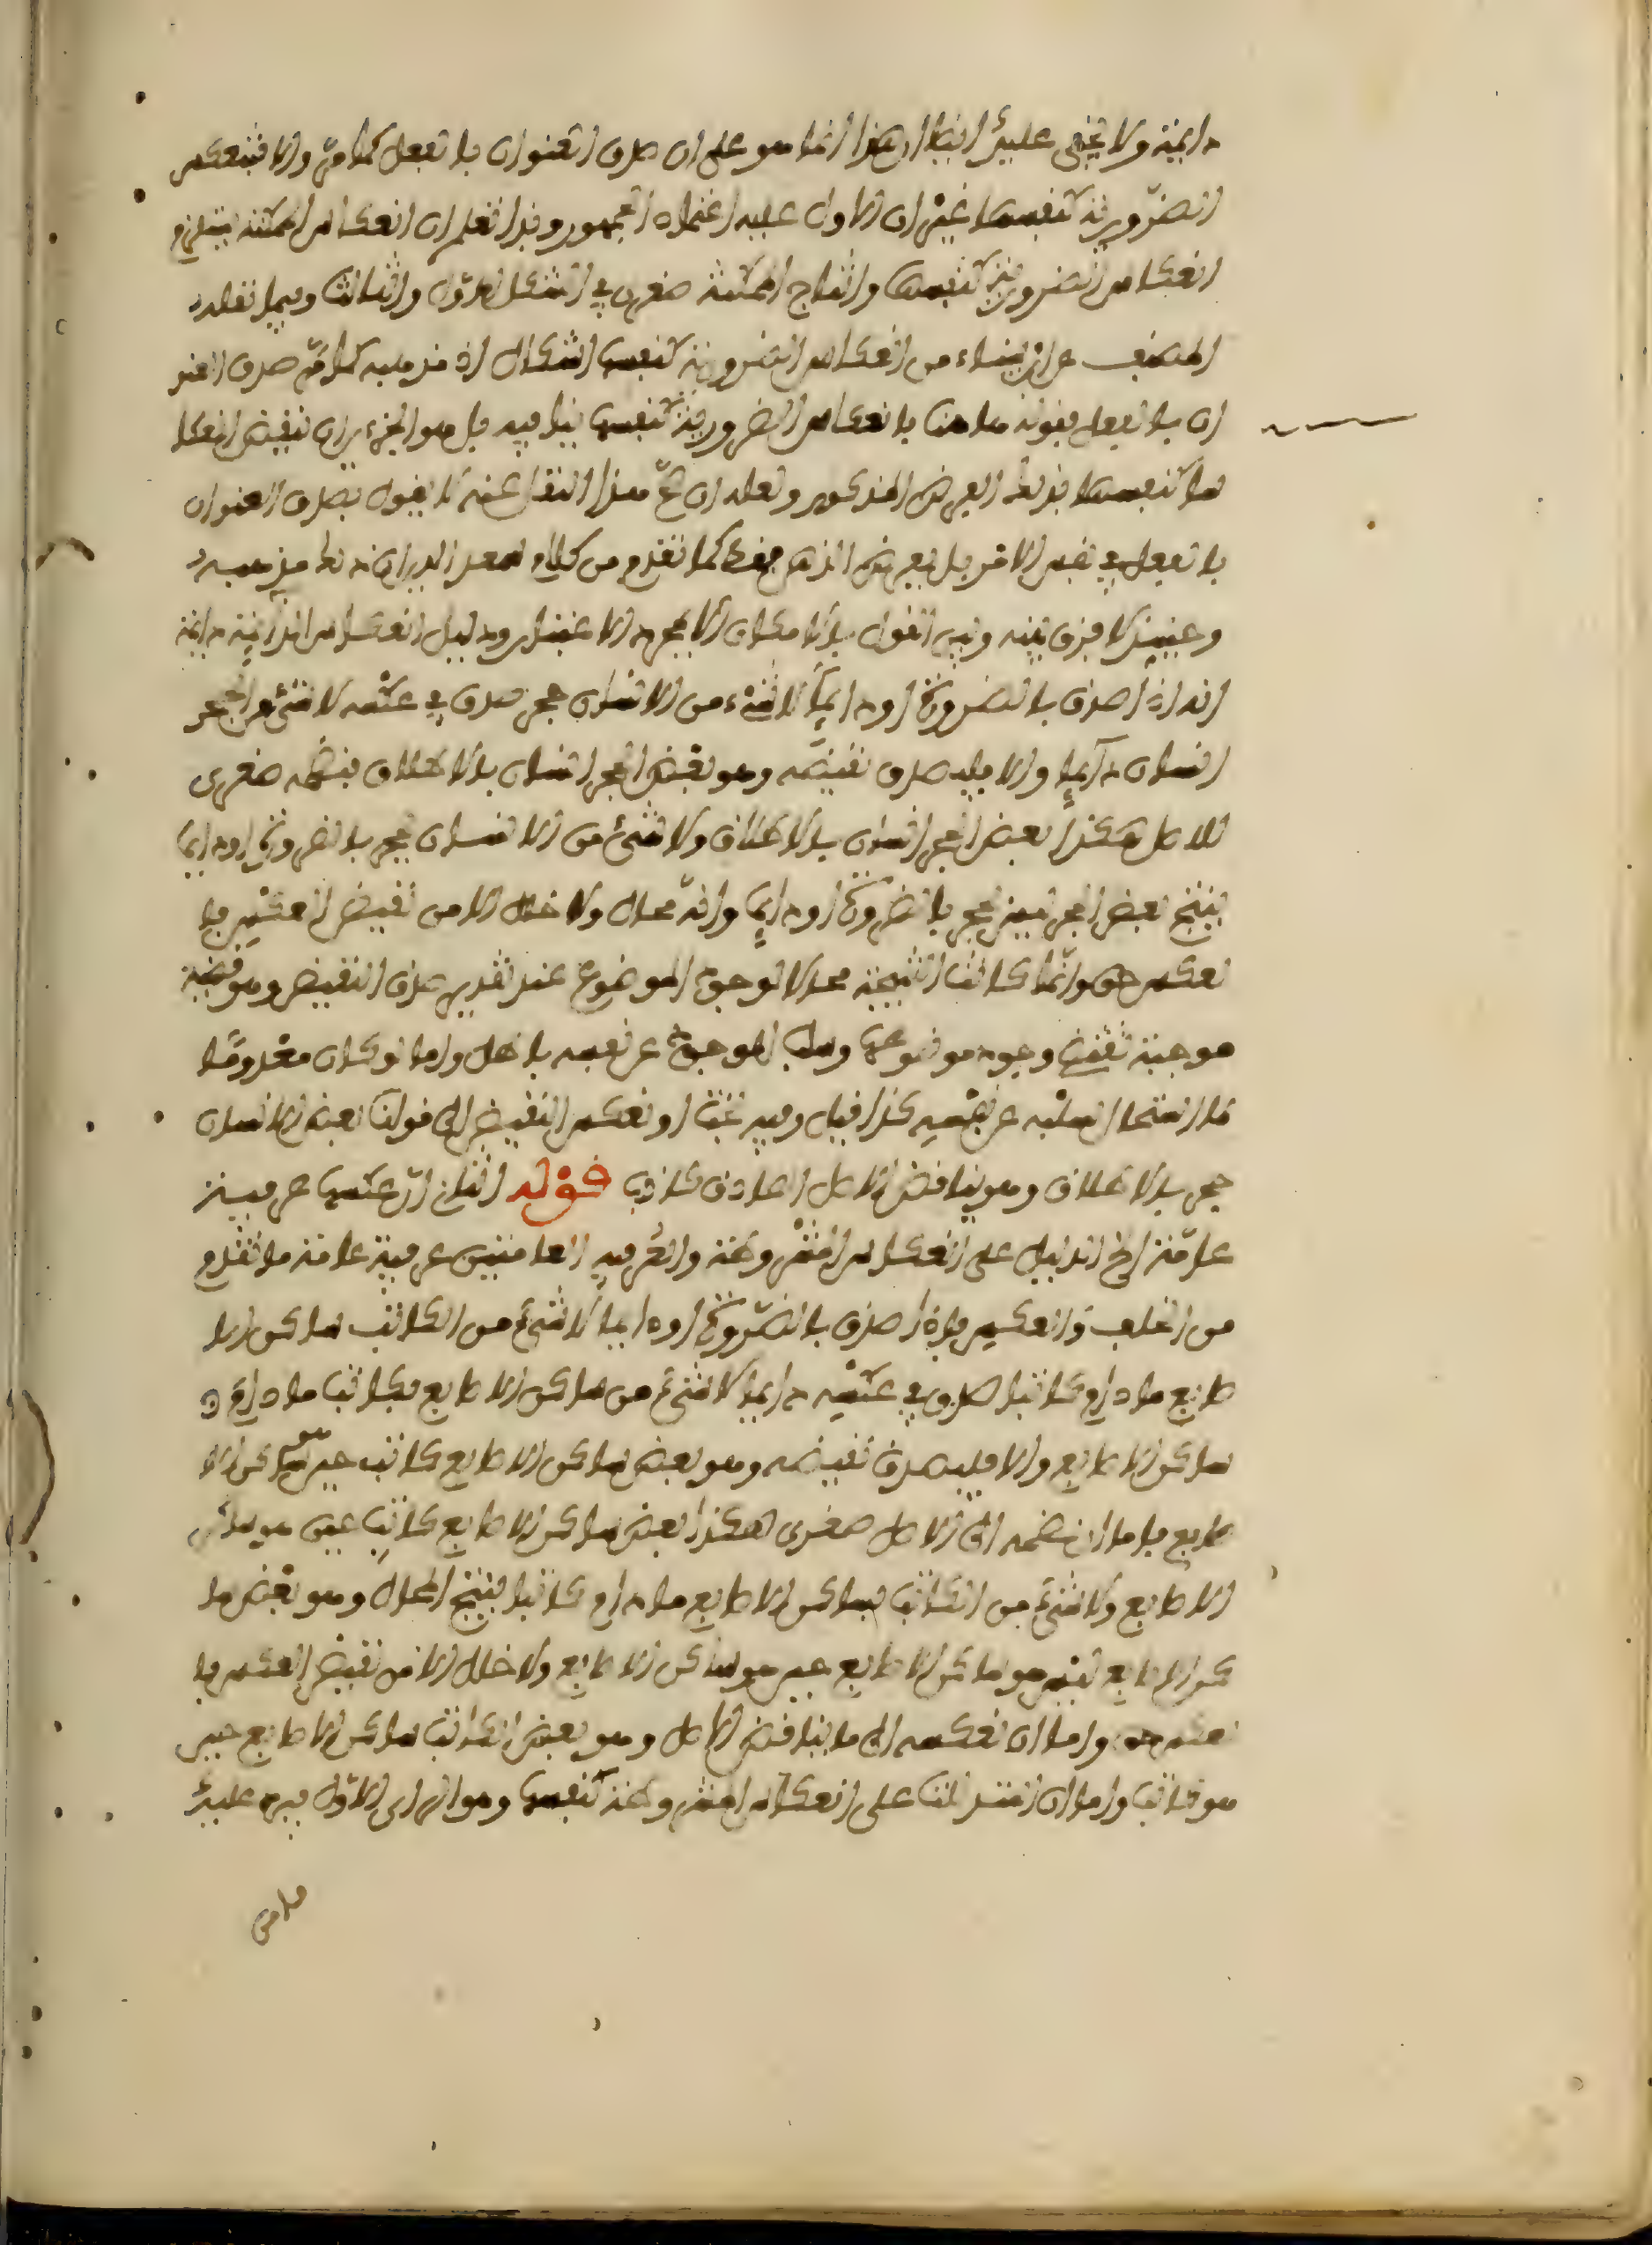 دايمة ولا يخفى عليك ايضا ان هذا انما هو على ان صدق العنوان بالفعل كما مر والا فتنعكس
الضرورية كنفسها غير ان الاول عليه اعتماد الجمهور وبذا تعلم ان انعكاس الممكنة يستلزم
انعكاس الضرورية كنفسها وانتاج الممكنة صغرى في الشكل الاول والثالث وفيما نقله
المصنف عن ابن سيناء من انعكاس الضرورية كنفسها اشكال اذ مذهبه كما مر صدق العنو
ان بالفعل فقوله هاهنا بانعكاس الضرورية كنفسها ينافيه بل هو الجزء ان نقيض انعكا
سها كنفسها بدلالة الفرض المذكور ولعله ان صح هذا النقل عنه لا يقول بصدق العنوان
بالفعل في نفس الامر بل بفرض الذهن فقط كما تقدم من كلام سعد الدين انه مذهبه
وحينئذ لا فرق بينه وبين القول بالامكان الا بمجرد الاعتبار ودليل انعكاس الدائمة دايمة
انه اذا صدق بالضرورة او دايما لا شيء من الانسان حجر صدق في عكسه لا شيء من الحجر
انسان دايما والا فليصدق نقيضه وهو بعض الحجر انسان بالاطلاق فنضمه صغرى
للاصل هكذا بعض الحجر انسان بالاطلاق ولا شيء من الانسان بحجر بالضرورة او دايما
ينتج بعض الحجر ليس بحجر بالضرورة او دايما وانه محال ولا خلل الا من نقيض العكس فا
لعكس حق وانما كانت النتيجة محالا لوجود الموضوع عند تقدير صدق النقيض وهو قضية
موجبة تقتضي وجود موضوعها وسلب الموجود عن نفسه باطل واما لو كان معدوما
لما استحال سلبه عن نفسه كذا قيل وفيه بحث او نعكس النقيض الى قولنا بعض الانسان
حجر بالاطلاق وهو يناقض الاصل الصادق كاذب قوله الثاني ان عكسها عرفية
عامة الخ الدليل على انعكاس المشروطة والعرفية العامتين عرفية عامة ما تقدم
من الخلف والعكس فاذا صدق بالضرورة او دايما لا شيء من الكاتب ساكن الا
صابع ما دام كاتبا صدق في عكسه دايما لا شيء من ساكن الاصابع بكاتب ما دام
ساكن الاصابع والا فليصدق نقيضه وهو بعض ساكن الاصابع كاتب حين هو ساكن الا
صابع فاما ان نضمه الى الاصل صغرى هكذا بعض ساكن الاصابع كاتب حين هو ساكن
الاصابع ولا شيء من الكاتب بساكن الاصابع ما دام كاتبا فينتج المحال وهو بعض سا
كن الاصابع ليس هو ساكن الاصابع حين هو ساكن الاصابع ولا خلل الا من نقيض العكس فا
لعكس حق واما ان نعكسه الى ما يناقض الاصل وهو بعض الكاتب ساكن الاصابع حين
هو كاتب واما ان استدللنا على انعكاس المشروطة كنفسها وهو الراي الاول فيرد عليك